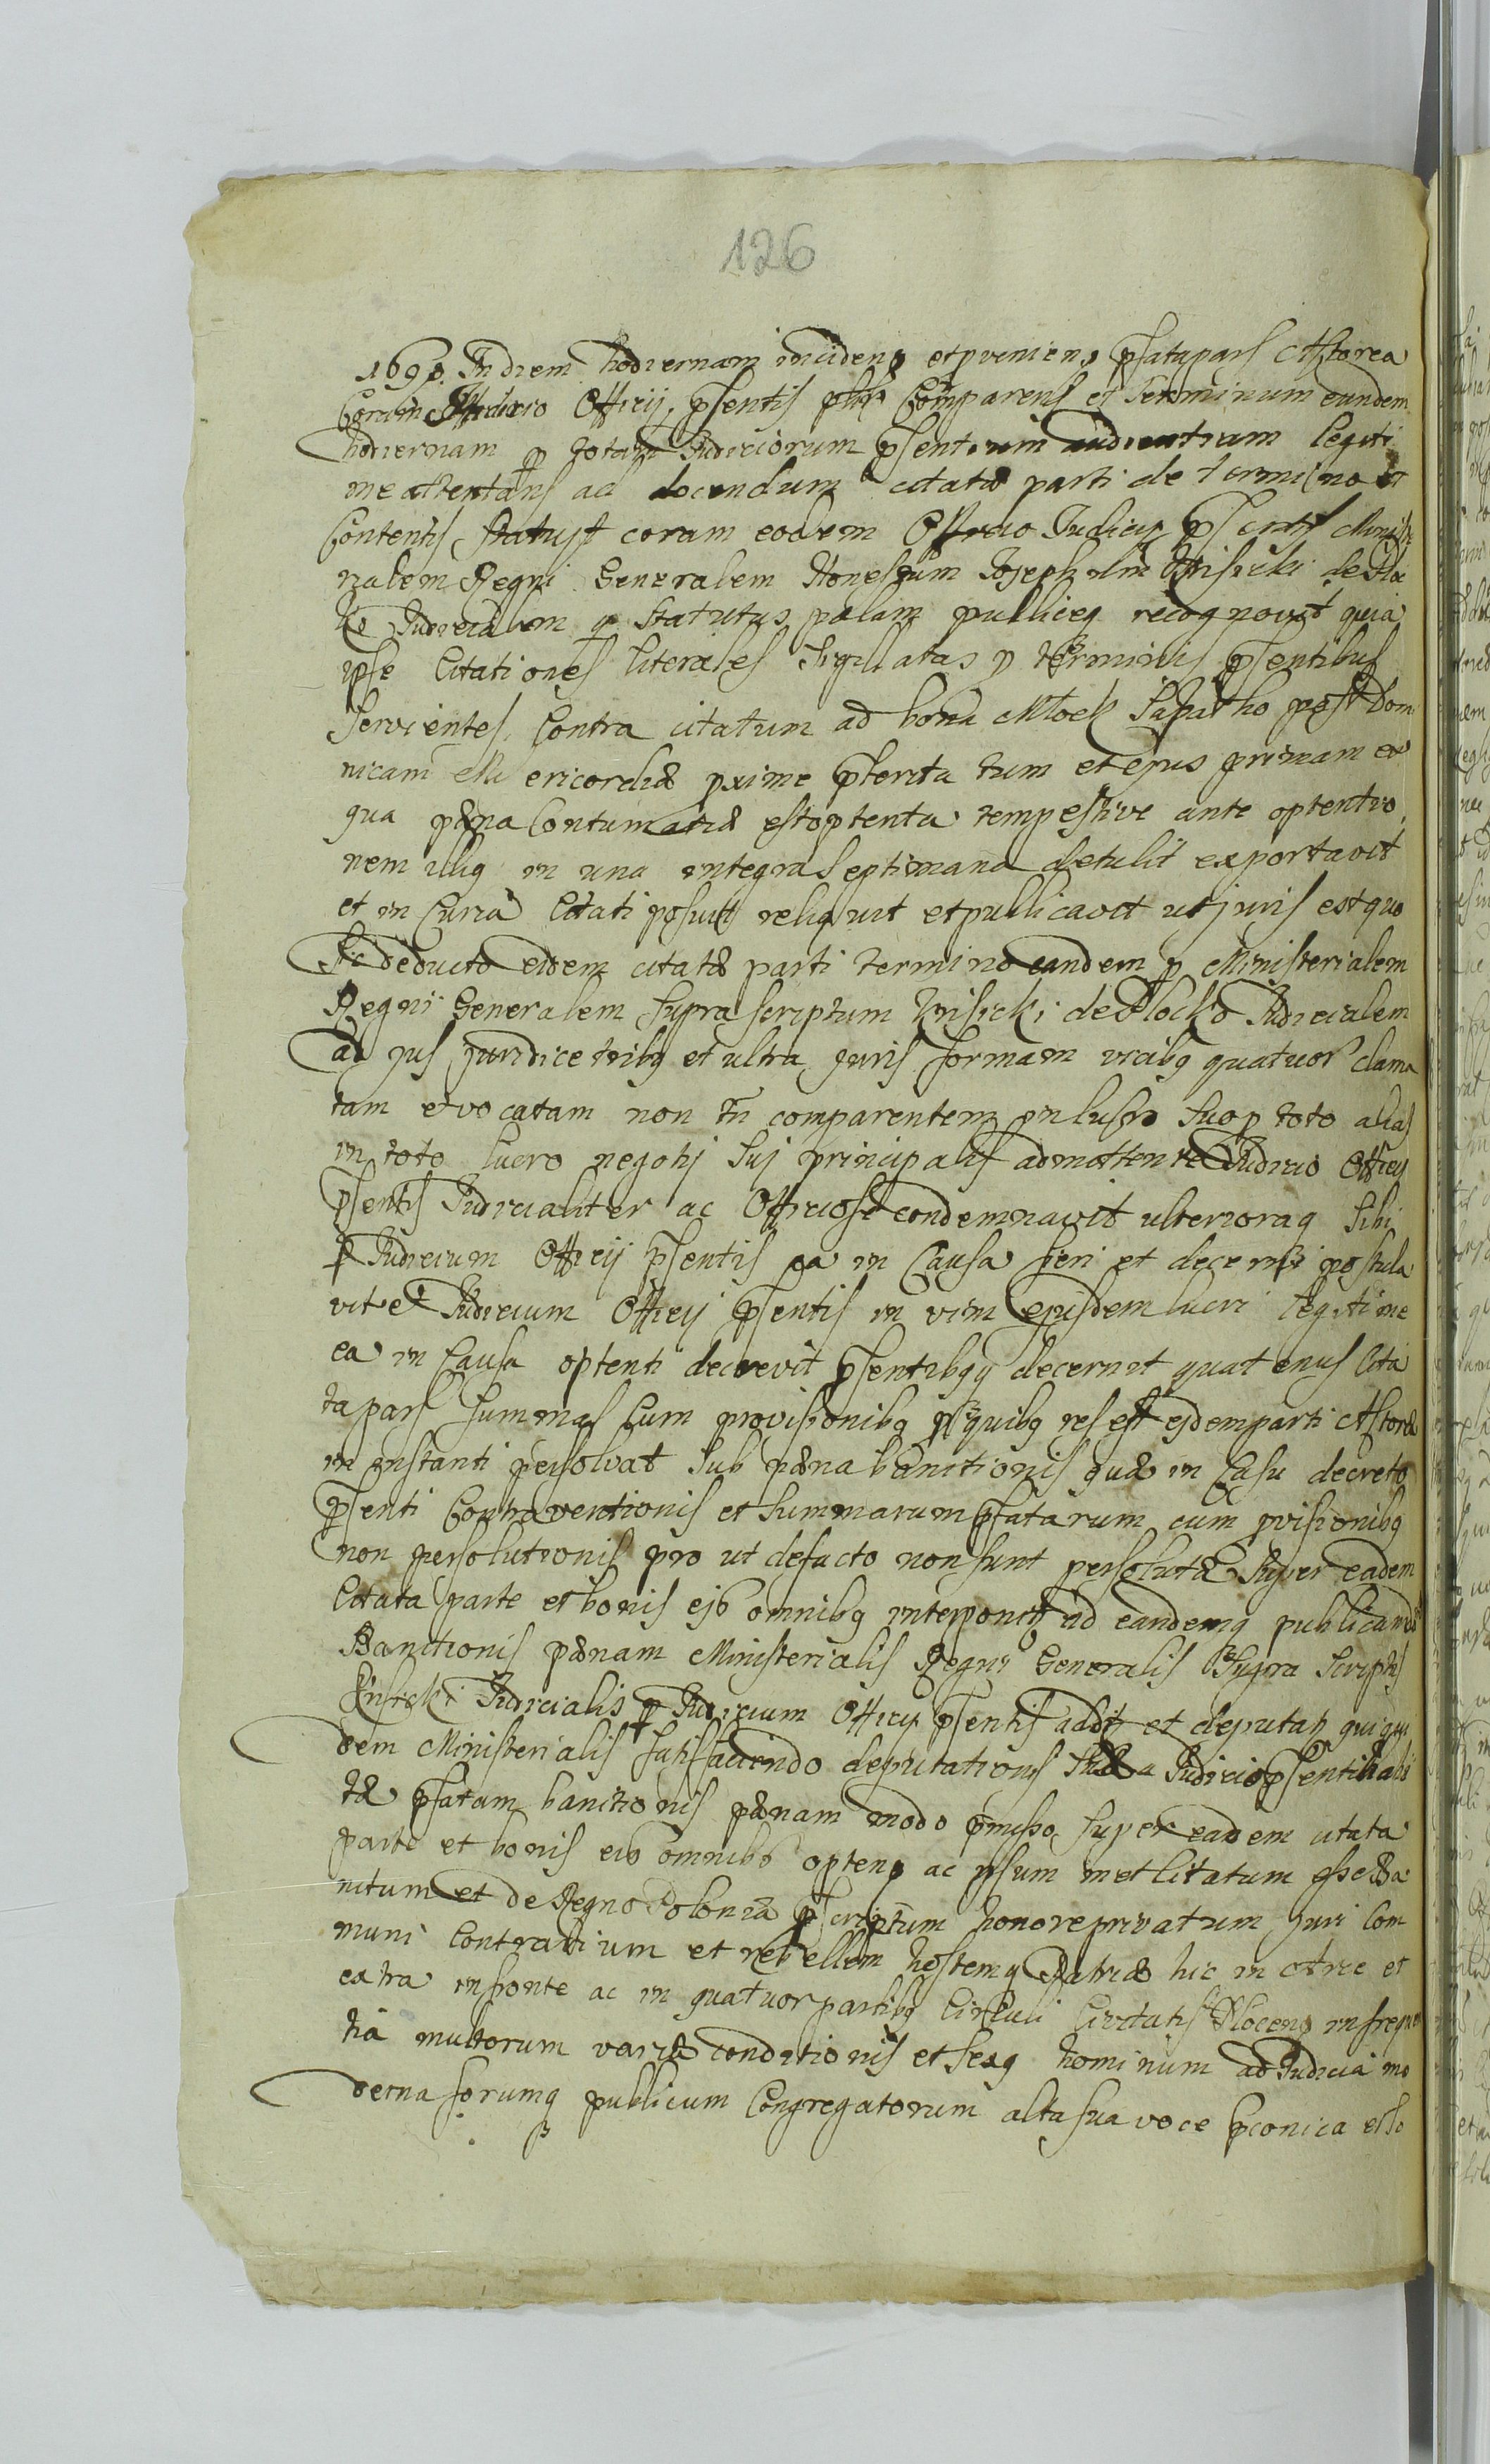 126
1690. In diem hodiernam incidens et pveniens pſata pars Actorea
Coram Iudicio Officij pſentis Comparens et terminum eundem
hodiernum p totam Iudiciorum pſentium audientiam legiti
me attentans ad docendum citatæ parti de termino et
Contentis Statuit coram eodem Officio Iudicij pſentis Miniſte
rialem Regni Generalem Honeſtum Joſephum Kriſicki de Plo
cko Iudicialem q Statutus palam publiceq recognovit quia
ipſe Citationes literales Sigillatas p terminis pſentibus
Servientes Contra citatum ad bona Mlock Sabatho poſt Dom
nicam Miſericordiæ pxime pterita tum et ejus primam ex
qua pæna Contumatiæ eſt optenta tempeſtive ante optentio
nem illiq in una integra Septimana detulit exportavit
et in Curia Citati poſuit reliquit et publicavit ut juris est quo
Sic deducto eidem citatæ parti termino eandem p Miniſterialem
Regni Generalem Supra ſcriptum Kriſicki de Plocko Iudicialem
ad jus juridice tribq et ultra juris formam vicibq quatuor clama
tam et vocatam non tn comparentem in lucro Suo p toto alias
in toto lucro negotij Sui principalis admittente Iudicio Officij
pſentis Iudicialiter ac Officioſe condemnavit ulterioraq Sibi
p Iudicium Officij pſentis ea in Cauſa fieri et decerni poſtula
vit et Iudicium Officij pſentis in vim ejusdem lucri legitime
ea in Cauſa optenti decrevit pſentibqq decernit quatenus Cita
ta pars Summas Cum proviſionibq p quibq res eſt ejdem parti Actoreæ
in inſtanti perſolvat Sub pæna banitionis quæ in Caſu decreto
pſenti Contraventionis et Summarum pſatarum cum pviſionibq
non perſolutionis pro ut de facto non ſunt perſolutæ Super eadem
Citata parte et bonis ejb omnibq interponit ad eandemq publicandã
Banitionis pænam Miniſterialis Regni Generalis Supra Scriptus
Kriſicki Iudicialis p Iudicium Officij pſentis addit et deputat qui qui
dem Miniſterialis Satisfaciendo deputationi Suæ a Iudicio pſenti habi
tæ pſatam banitionis pænam modo pmiſſo Super eadem citata
parte et bonis eib omnibq optens ac ipſum met Citatum eſſe Ba
nitum et de Regno Poloniæ pſcriptum honore privatum Juri Com
muni Contrarium et rebellem hoſtemq Patriæ hic in Arce et
extra in fronte ac in quatuor partibq Circuli Civitatis Plocens in frequen
tia multorum variæ conditionis et Sexq hominum ad Iudicia mo
derna forumq publicum Congregatorum alta ſua voce pconica et ſo